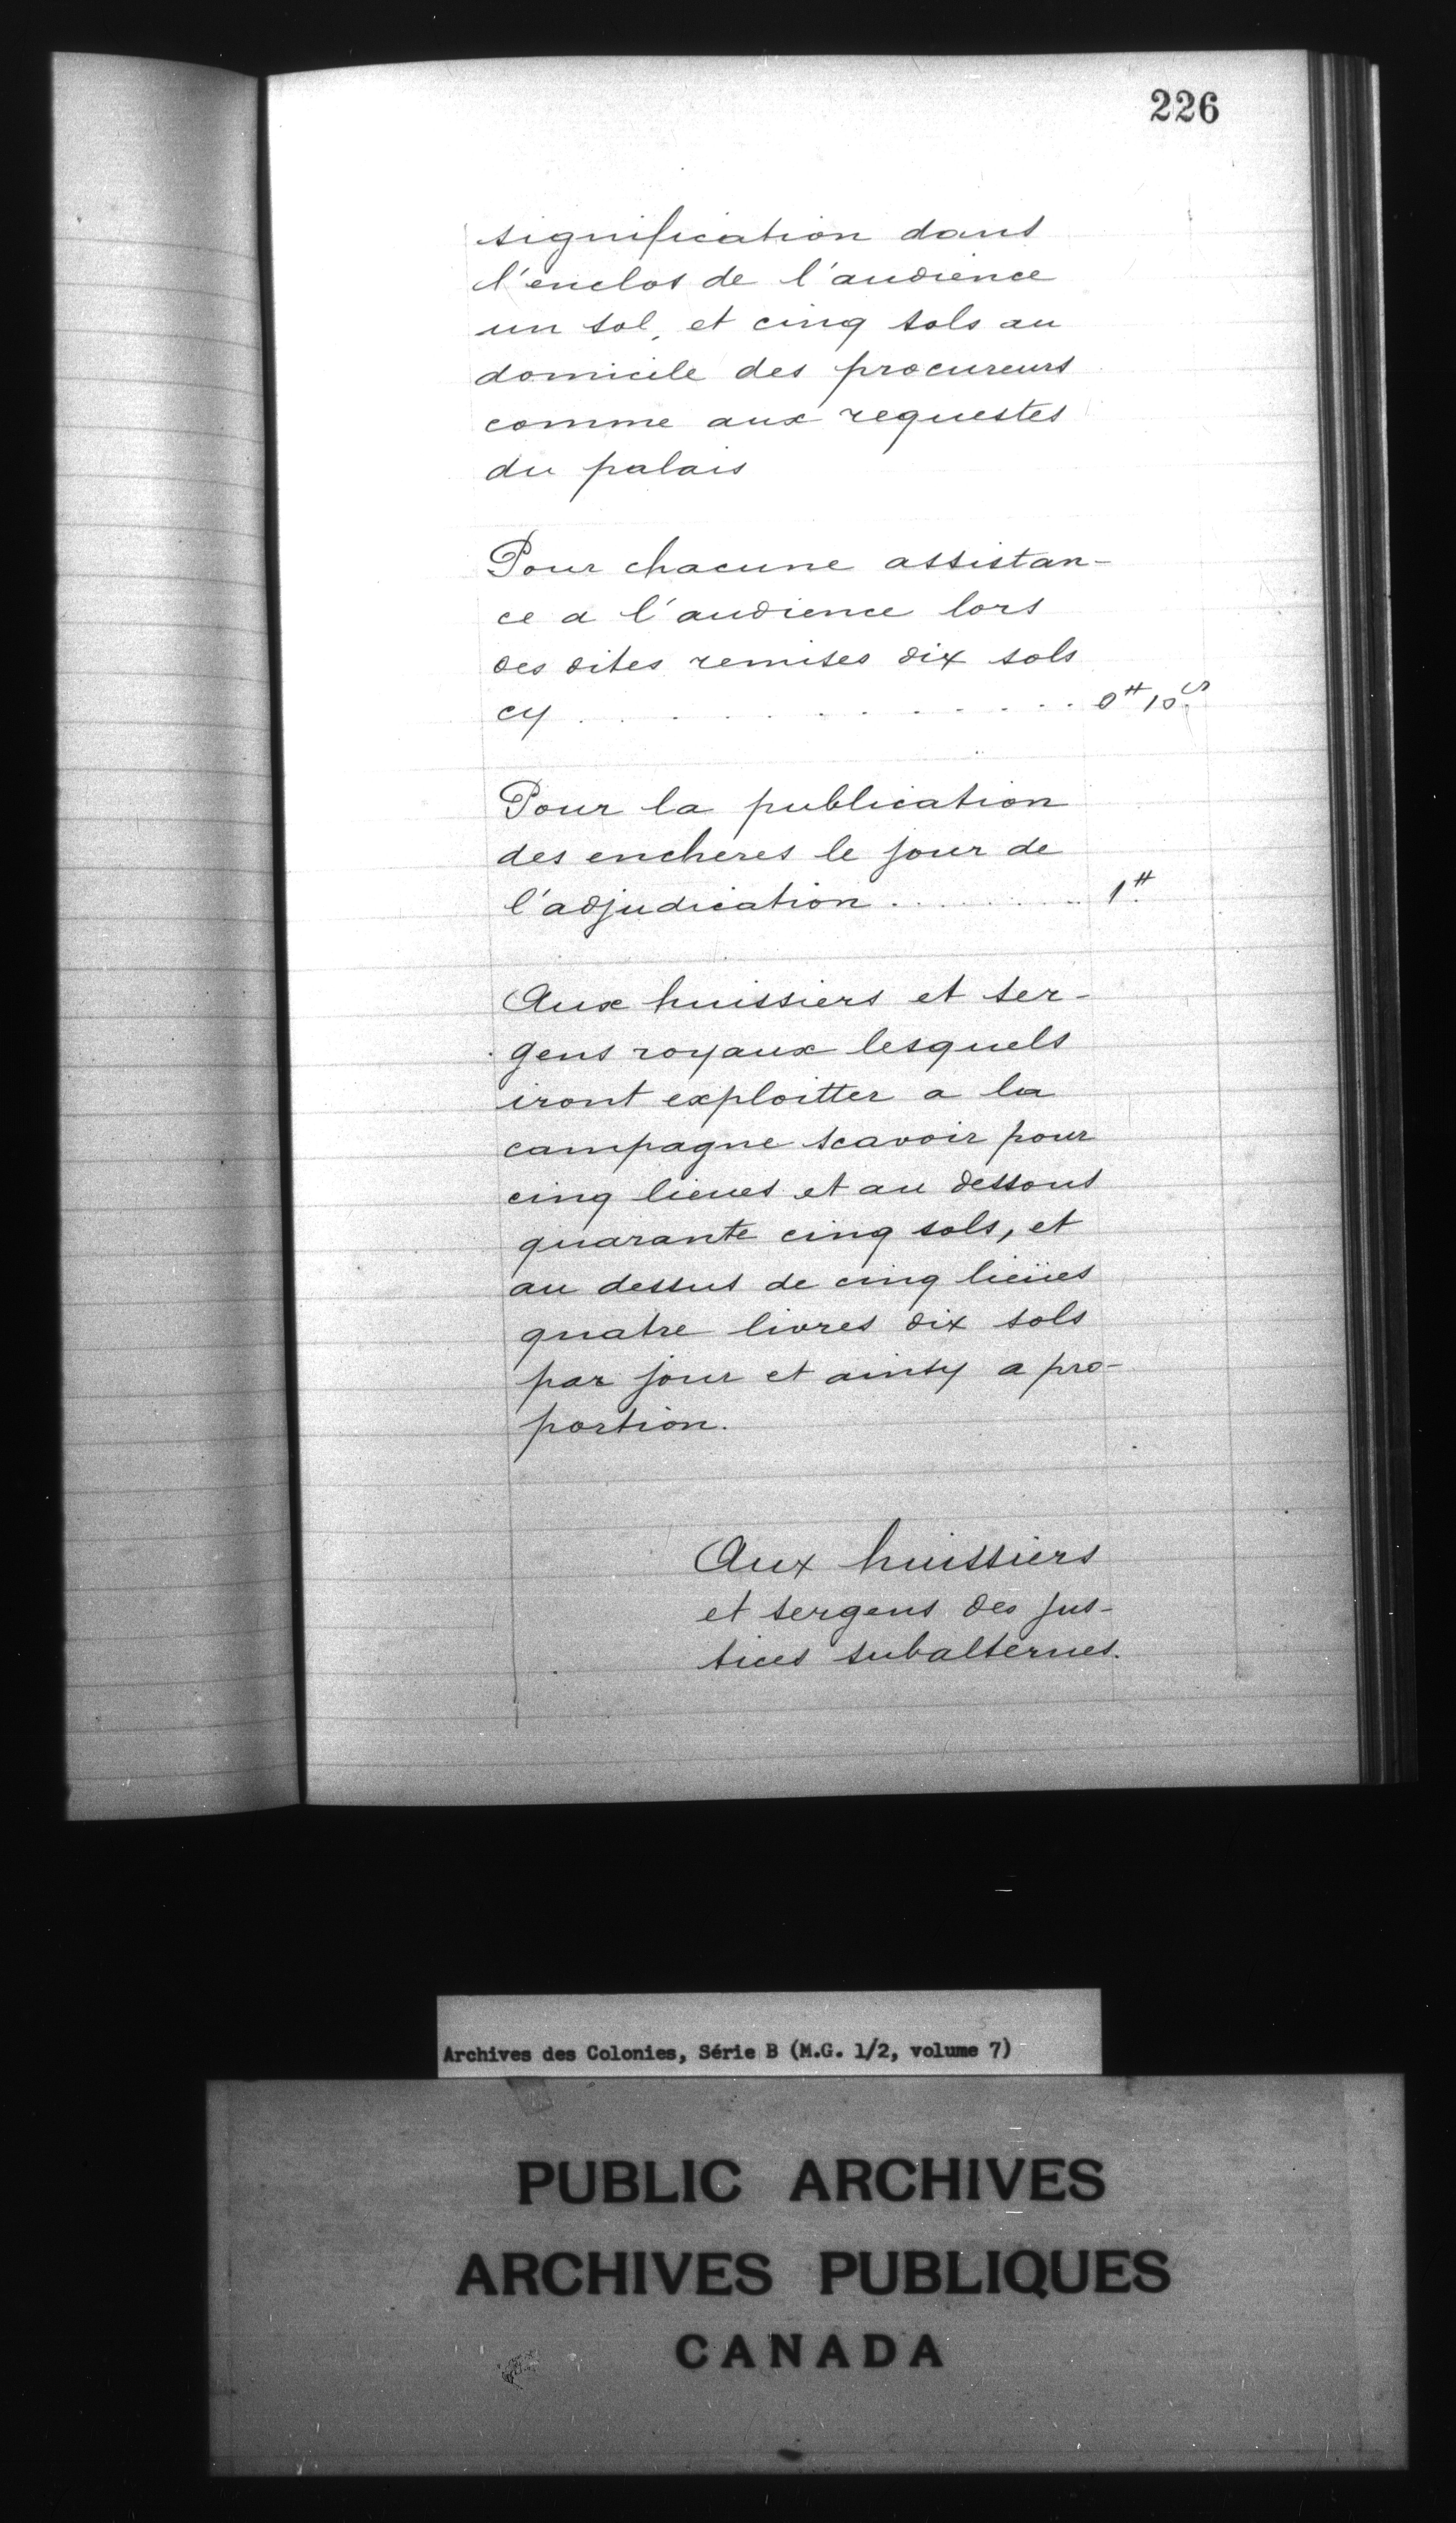 226
signification dans
l'enclos de l'audience
un sol, et cinq sols au
domicile des procureurs
comme aux requestes
du palais
Pour chacune assistan-
ce a l'audience lors
des dites remises dix sols
cy . . . . . . . . . . . . 0# 10s
Pour la publication
des encheres le jour de
l'adjudication . . . . . . . . . 1#
Aux huissiers et ser-
gens royaux lesquels
iront exploitter a la
campagne scavoir pour
cinq lieues et au dessous
quarante cinq sols, et
au dessus de cinq lieües
quatre livres dix sols
par jour et ainsy a pro-
portion.
Aux huissiers
et sergens des jus-
tices subalternes.
Archives des Colonies, Série B (M.G. 1/2, volume 7)
PUBLIC ARCHIVES
ARCHIVES PUBLIQUES
CANADA